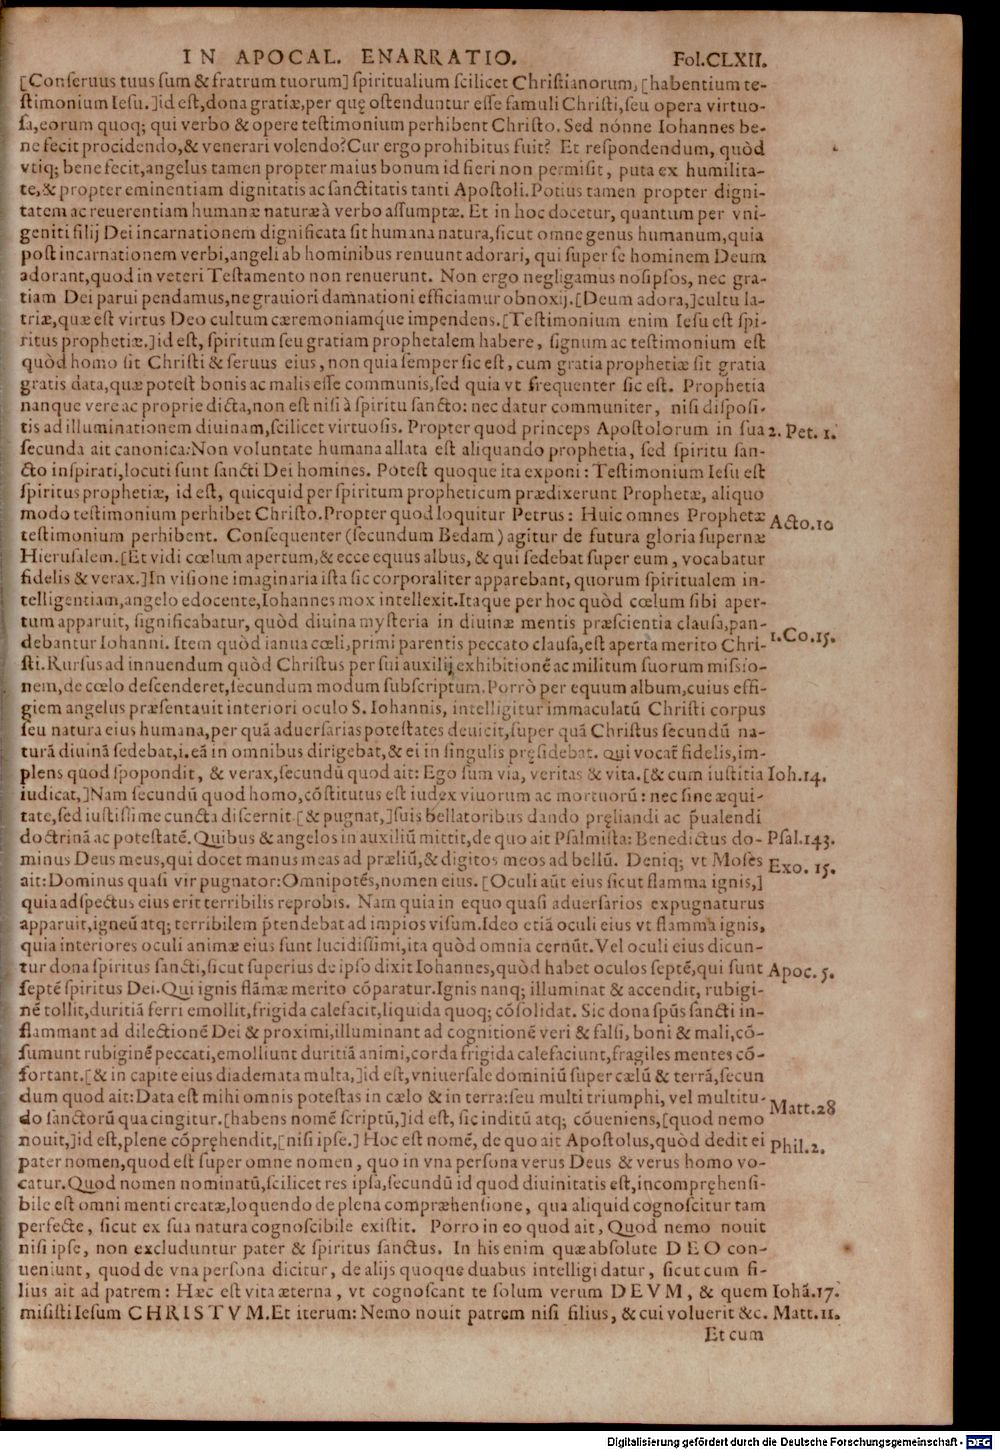 IN APOCAL. ENARRATIO. Fol. CLXII.
[Conseruus tuus sum & fratrum tuorum] spiritualium scilicet Christianorum, [habentium te-
stimonium Iesu.] id est, dona gratiæ, per quę ostenduntur esse famuli Christi, seu opera virtuo-
sa, eorum quoq; qui verbo & opere testimonium perhibent Christo. Sed nónne Iohannes be-
ne fecit procidendo, & venerari volendo? Cur ergo prohibitus fuit? Et respondendum, quòd
vtiq; bene fecit, angelus tamen propter maius bonum id fieri non permisit, puta ex humilita-
te, & propter eminentiam dignitatis ac sanctitatis tanti Apostoli. Potius tamen propter digni-
tatem ac reuerentiam humanæ naturæ à verbo assumptæ. Et in hoc docetur, quantum per vni-
geniti filij Dei incarnationem dignificata sit humana natura, sicut omne genus humanum, quia
post incarnationem verbi, angeli ab hominibus renuunt adorari, qui super se hominem Deum
adorant, quod in veteri Testamento non renuerunt. Non ergo negligamus nosipsos, nec gra-
tiam Dei parui pendamus, ne grauiori damnationi efficiamur obnoxij. [Deum adora,] cultu la-
triæ, quæ est virtus Deo cultum cæremoniamq́ue impendens. [Testimonium enim Iesu est spi-
ritus prophetiæ.] id est, spiritum seu gratiam prophetalem habere, signum ac testimonium est
quòd homo sit Christi & seruus eius, non quia semper sic est, cum gratia prophetiæ sit gratia
gratis data, quæ potest bonis ac malis esse communis, sed quia vt frequenter sic est. Prophetia
nanque vere ac proprie dicta, non est nisi à spiritu sancto: nec datur communiter, nisi disposi-
tis ad illuminationem diuinam, scilicet virtuosis. Propter quod princeps Apostolorum in sua 2. Pet. 1.
secunda ait canonica: Non voluntate humana allata est aliquando prophetia, sed spiritu san-
cto inspirati, locuti sunt sancti Dei homines. Potest quoque ita exponi: Testimonium Iesu est
spiritus prophetiæ, id est, quicquid per spiritum propheticum prædixerunt Prophetæ, aliquo
modo testimonium perhibet Christo. Propter quod loquitur Petrus: Huic omnes Prophetæ Acto. 10
testimonium perhibent. Consequenter (secundum Bedam) agitur de futura gloria supernæ
Hierusalem. [Et vidi cœlum apertum, & ecce equus albus, & qui sedebat super eum, vocabatur
fidelis & verax.] In visione imaginaria ista sic corporaliter apparebant, quorum spiritualem in-
telligentiam, angelo edocente, Iohannes mox intellexit. Itaque per hoc quòd cœlum sibi aper-
tum apparuit, significabatur, quòd diuina mysteria in diuinæ mentis præscientia clausa, pan-
debantur Iohanni. Item quòd ianua cœli, primi parentis peccato clausa, est aperta merito Chri- 1. Co. 15.
sti. Rursus ad innuendum quòd Christus per sui auxilij exhibitionē ac militum suorum missio-
nem, de cœlo descenderet, secundum modum subscriptum. Porrò per equum album, cuius effi-
giem angelus præsentauit interiori oculo S. Iohannis, intelligitur immaculatū Christi corpus
seu natura eius humana, per quā aduersarias potestates deuicit, super quā Christus secundū na-
turā diuinā sedebat, i. eā in omnibus dirigebat, & ei in singulis pręsidebat. qui vocat̄ fidelis, im-
plens quod spopondit, & verax, secundū quod ait: Ego sum via, veritas & vita. [& cum iustitia Ioh. 14.
iudicat,] Nam secundū quod homo, cōstitutus est iudex viuorum ac mortuorū: nec sine æqui-
tate, sed iustissime cuncta discernit [& pugnat,] suis bellatoribus dando pręliandi ac p̄ualendi
doctrinā ac potestatē. Quibus & angelos in auxiliū mittit, de quo ait Psalmista: Benedictus do- Psal. 143.
minus Deus meus, qui docet manus meas ad præliū, & digitos meos ad bellū. Deniq; vt Moses
ait: Dominus quasi vir pugnator: Omnipotēs, nomen eius. [Oculi aūt eius sicut flamma ignis,] Exo. 15.
quia adspectus eius erit terribilis reprobis. Nam quia in equo quasi aduersarios expugnaturus
apparuit, igneū atq; terribilem p̄tendebat ad impios visum. Ideo etiā oculi eius vt flamma ignis,
quia interiores oculi animæ eius sunt lucidissimi, ita quòd omnia cernūt. Vel oculi eius dicun-
tur dona spiritus sancti, sicut superius de ipso dixit Iohannes, quòd habet oculos septē, qui sunt Apoc. 5.
septē spiritus Dei. Qui ignis flāmæ merito cōparatur. Ignis nanq; illuminat & accendit, rubigi-
nē tollit, duritiā ferri emollit, frigida calefacit, liquida quoq; cōsolidat. Sic dona spūs sancti in-
flammant ad dilectionē Dei & proximi, illuminant ad cognitionē veri & falsi, boni & mali, cō-
sumunt rubiginē peccati, emolliunt duritiā animi, corda frigida calefaciunt, fragiles mentes cō-
fortant. [& in capite eius diademata multa,] id est, vniuersale dominiū super cælū & terrā, secun
dum quod ait: Data est mihi omnis potestas in cælo & in terra: seu multi triumphi, vel multitu- Matt. 28
do sanctorū qua cingitur. [habens nomē scriptū,] id est, sic inditū atq; cōueniens, [quod nemo
nouit,] id est, plene cōpręhendit, [nisi ipse.] Hoc est nomē, de quo ait Apostolus, quòd dedit ei Phil. 2.
pater nomen, quod est super omne nomen, quo in vna persona verus Deus & verus homo vo-
catur. Quod nomen nominatū, scilicet res ipsa, secundū id quod diuinitatis est, incompręhensi-
bile est omni menti creatæ, loquendo de plena compræhensione, qua aliquid cognoscitur tam
perfecte, sicut ex sua natura cognoscibile existit. Porro in eo quod ait, Quod nemo nouit
nisi ipse, non excluduntur pater & spiritus sanctus. In his enim quæ absolute DEO con-
ueniunt, quod de vna persona dicitur, de alijs quoque duabus intelligi datur, sicut cum fi-
lius ait ad patrem: Hæc est vita æterna, vt cognoscant te solum verum DEVM, & quem Iohā. 17.
misisti Iesum CHRISTVM. Et iterum: Nemo nouit patrem nisi filius, & cui voluerit &c. Matt. 11.
Et cum
Digitalisierung gefördert durch die Deutsche Forschungsgemeinschaft - DFG